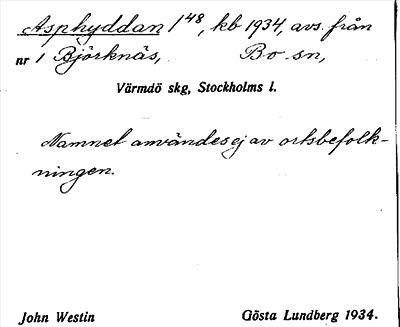 Asphyddan 1⁴⁸, kb 1934, avs. från
nr 1 Björknäs, Bo sn,
Värmdö skg, Stockholms l.
Namnet användes ej av ortsbefolk-
ningen.
John Westin Gösta Lundberg 1934.